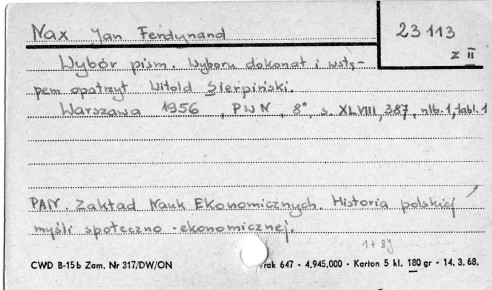 Nax Jan Ferdynand
23 113
z II
Wybór pism. Wyboru dokonał i wstę-
pem opatrzył Witold Sierpiński.
Warszawa 1956, PWN, 8° s. XLVIII, 387, nlb. 1, tabl. 1
PAN Zakład Nauk Ekonomicznych. Historia polskiej
myśli społeczno-ekonomicznej.
1+89
CWD B-15b Zam. Nr 317/DW/ON rak 647 - 4.945,000 - Karton 5 kl. 180 gr - 14. 3. 68.